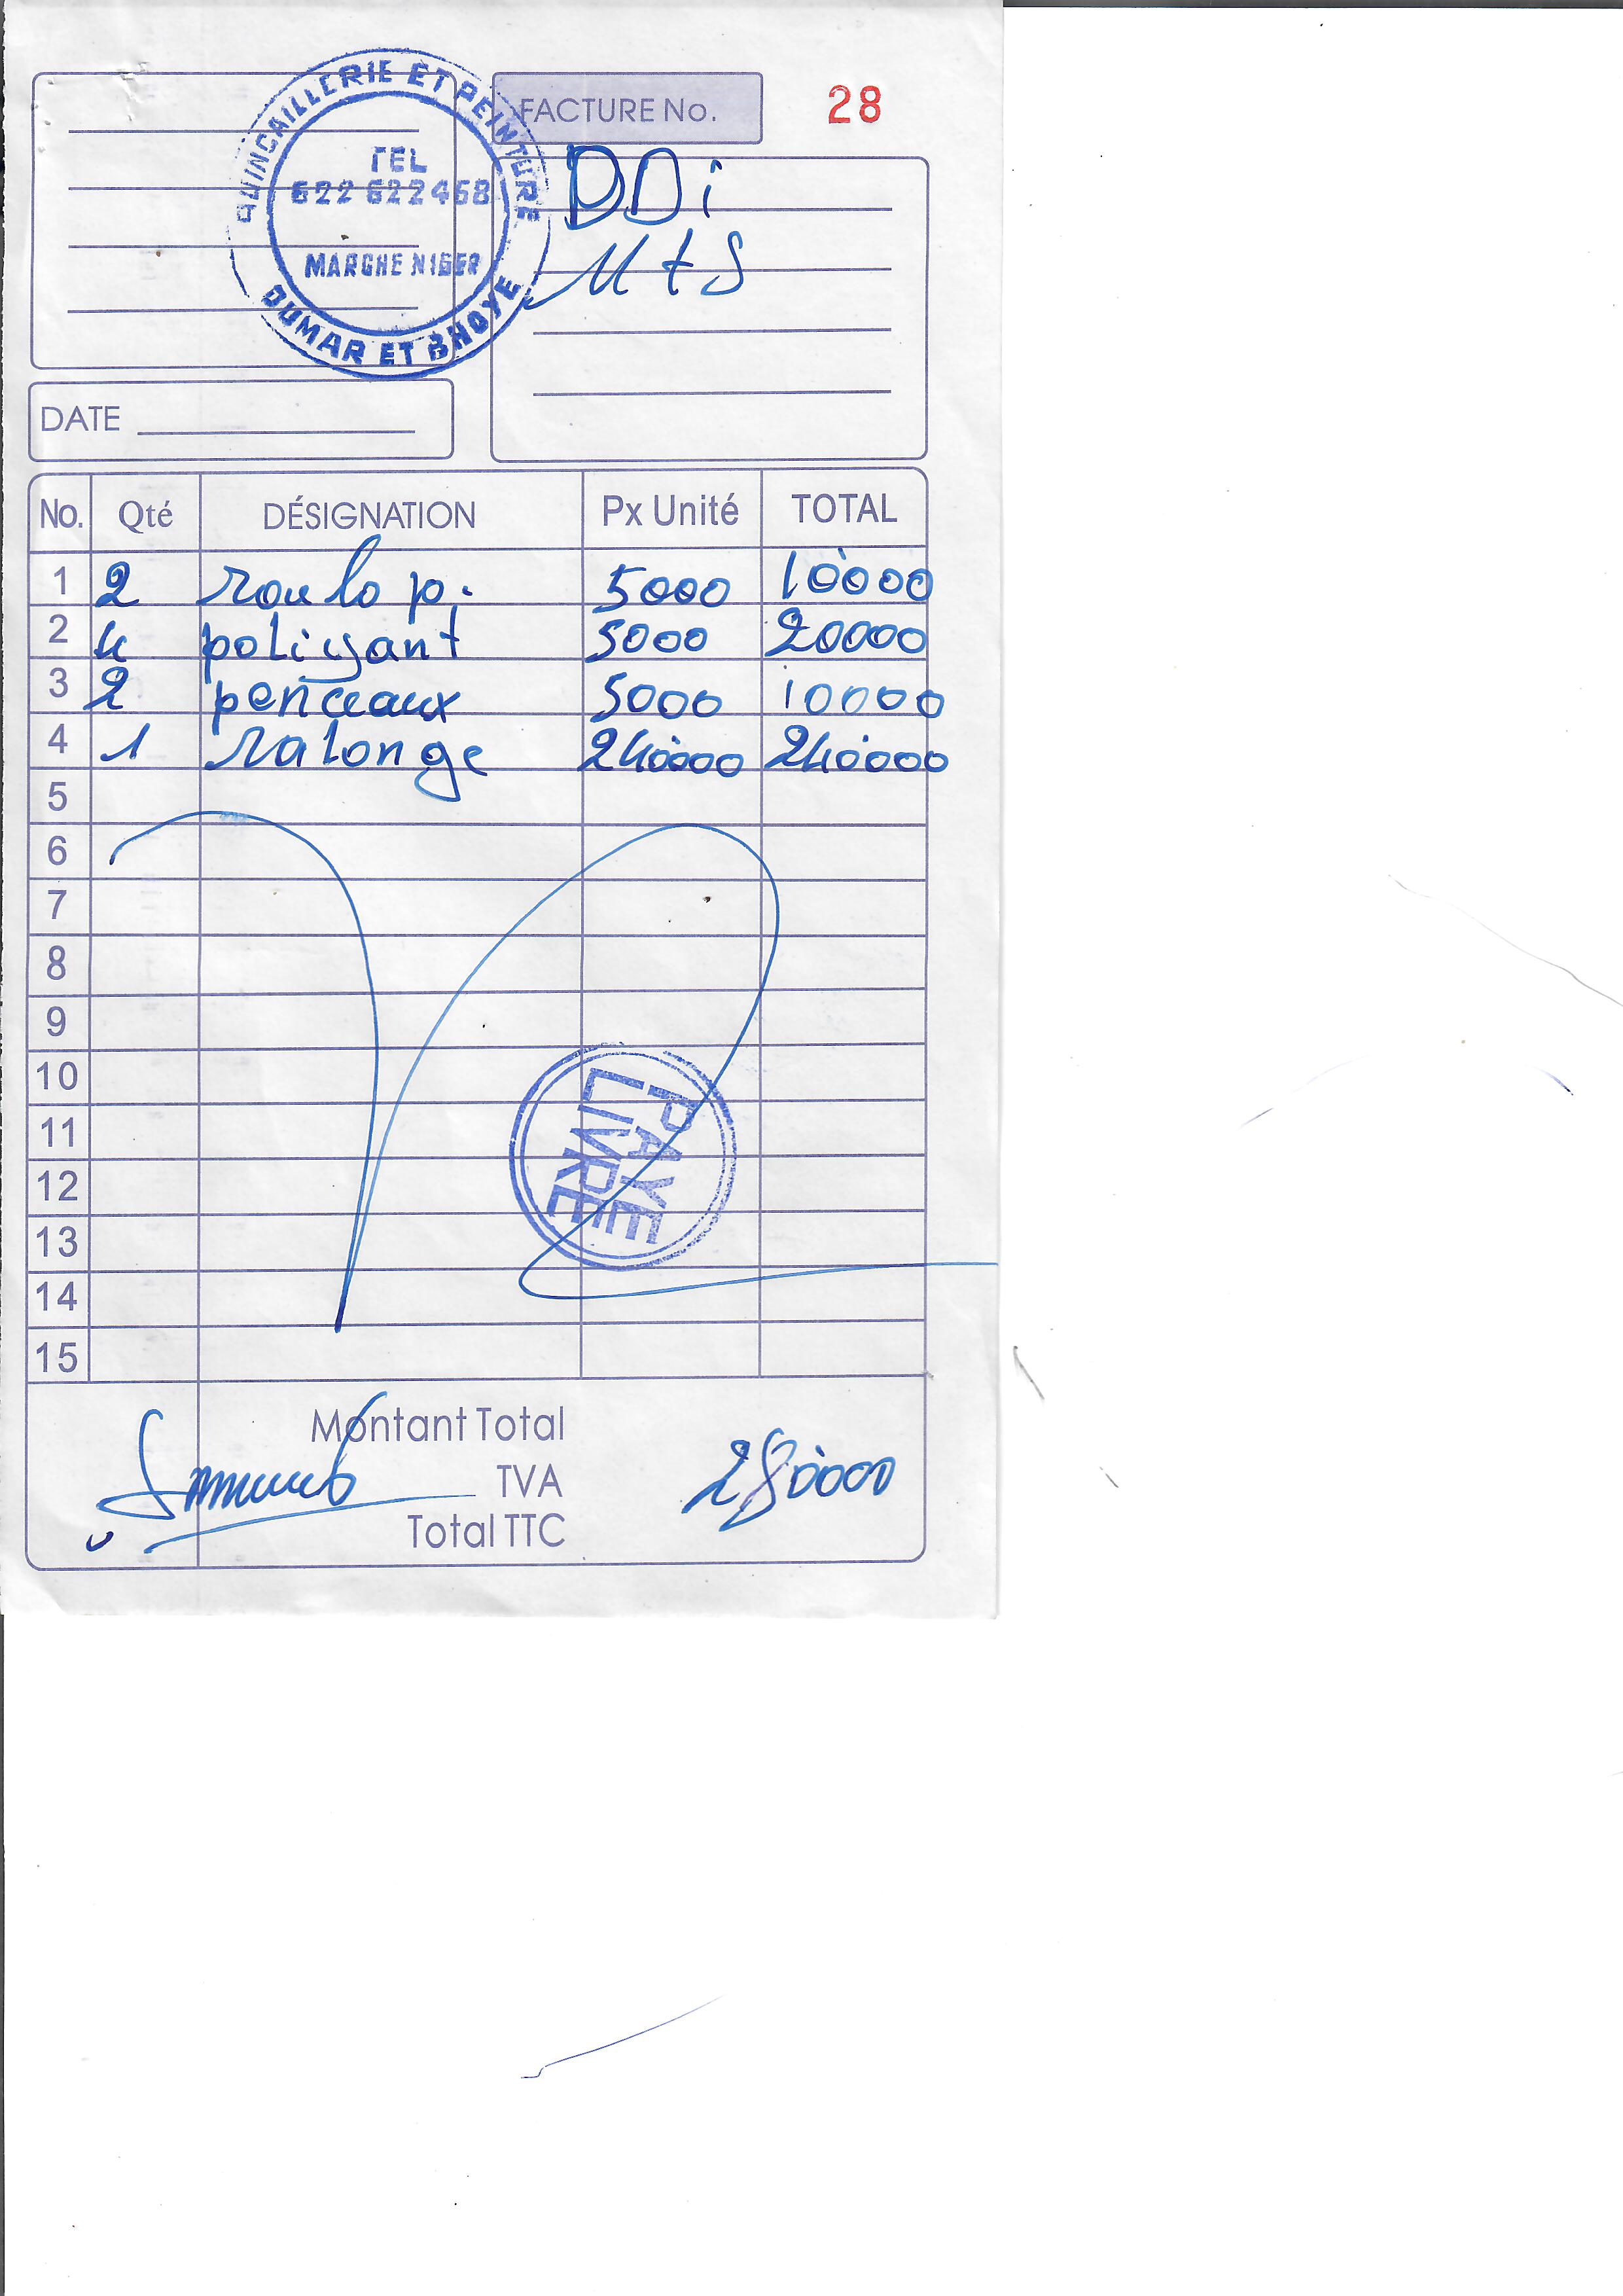 QUINCAILLERIE ET PEINTURE
TEL
622 622 468
MARCHE NIGER
OUMAR ET BHOYE
FACTURE No. 28
DDi
MtS
DATE
No. Qté DÉSIGNATION Px Unité TOTAL
1 2 roulo p. 5000 10000
2 4 poligant 5000 20000
3 2 penceaux 5000 10000
4 1 ralonge 240000 240000
5
6
7
8
9
10
11
12
13
14
15
PAYE
LIVRE
Montant Total
TVA 280000
Total TTC